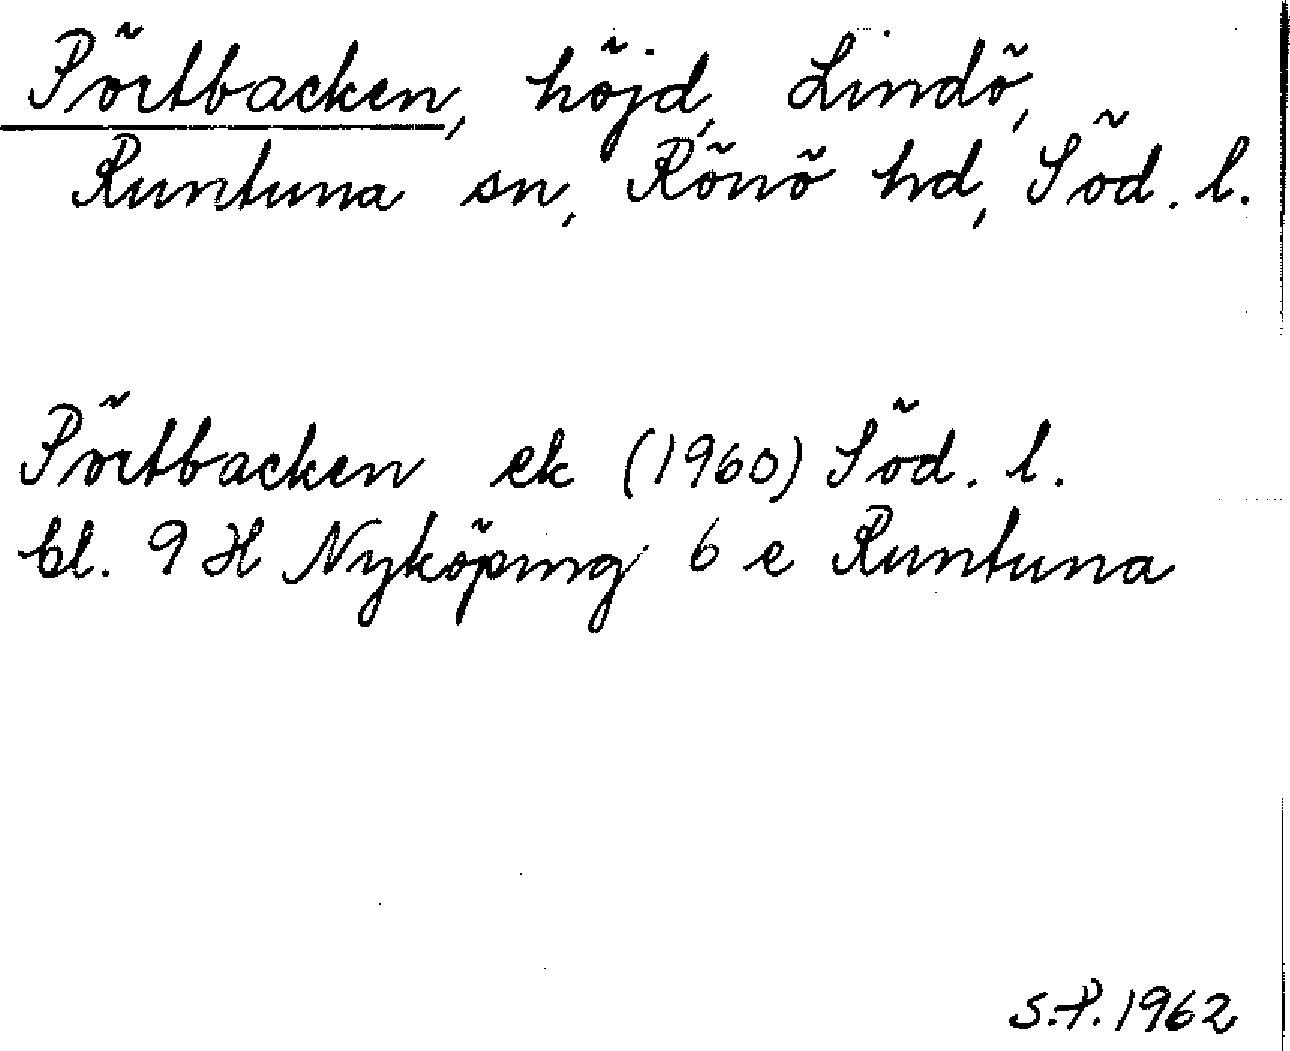 Pörtbacken, höjd, Lindö,
Runtuna sn, Rönö hd, Söd. l.
Pörtbacken ek (1960) Söd. l.
bl. 9 H Nyköping 6 e Runtuna
S.P. 1962